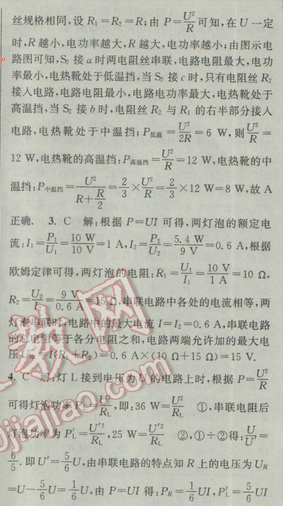 丝规格相同,设 R₁=R₂=R,由 P=U²/R 可知,在 U 一定
时,R 越小,电功率越大,R 越大,电功率越小;由图示电
路图可知,S₂ 接 a 时两电阻丝串联,电路电阻最大,电功
率最小,电热靴处于低温挡,当 S₂ 接 c 时,只有电阻丝 R₂
接入电路,电路电阻最小,电路电功率最大,电热靴处于
高温挡,当 S₂ 接 b 时,电阻丝 R₂ 与 R₁ 的右半部分接入
电路,电热靴处于中温挡;P低温=U²/2R=6 W,则 U²/R=
12 W,电热靴的高温挡:P高温挡=U²/R=12 W,电热靴的中
温挡:P中温挡=U²/(R+R/2)=2/3×U²/R=2/3×12 W=8 W,故 A
正确. 3. C 解:根据 P=UI 可得,两灯泡的额定电
流:I₁=P₁/U₁=10 W/10 V=1 A,I₂=P₂/U₂=5.4 W/9 V=0.6 A,根据
欧姆定律可得,两灯泡的电阻:R₁=U₁/I₁=10 V/1 A=10 Ω,
R₂=U₂/I₂=9 V/0.6 A=15 Ω,串联电路中各处的电流相等,两
灯泡串联时,电路中的最大电流 I=I₂=0.6 A,串联电路
的总电阻等于各分电阻之和,电路两端允许加的最大电
压 U=I(R₁+R₂)=0.6 A×(10 Ω+15 Ω)=15 V.
4. C 解:灯 L 接到电压为 U 的电路上时,根据 P=U²/R
可得灯泡功率 P=U²/RL,即:36 W=U²/RL ①,串联电阻后
灯泡功率为 P′L=U′²/RL,25 W=U′²/RL ②,①÷②得:U/U′=
6/5,即 U′=5/6U,由串联电路的特点知 R 上的电压为 UR
=U-5/6U=1/6U,由 P=UI 得:PR=1/6UI,P′L=5/6UI